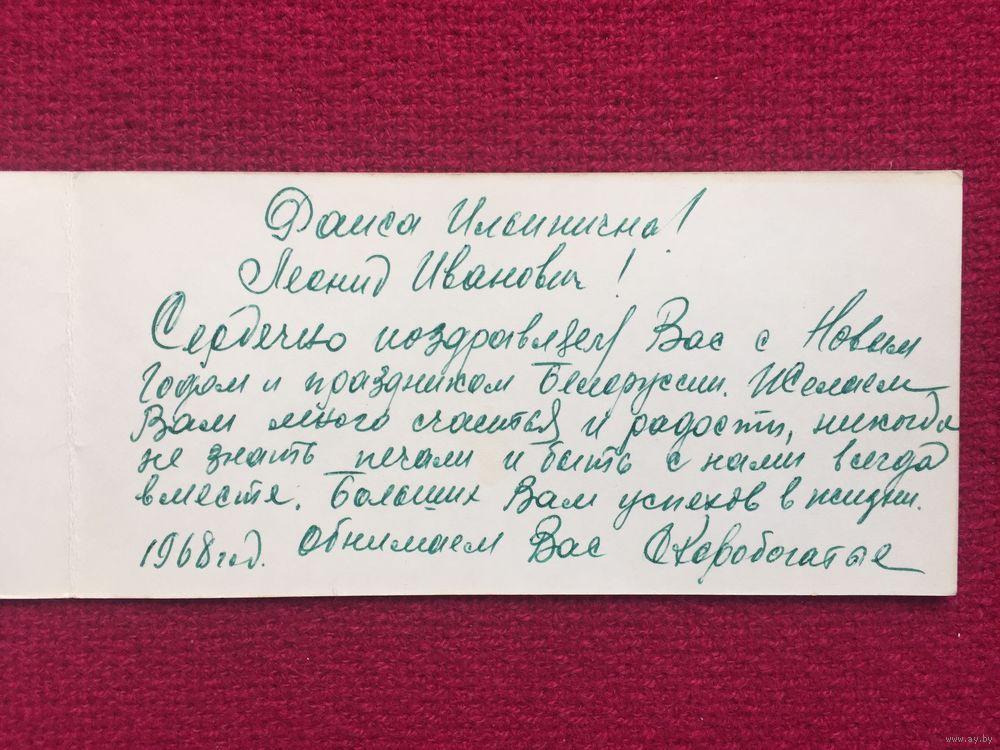 Раиса Ильинична!
Леонид Иванович!
Сердечно поздравляем Вас с Новым
Годом и праздником Белоруссии. Желаем
Вам много счастья и радости, никогда
не знать печали и быть с нами всегда
вместе. Больших Вам успехов в жизни.
1968 год. Обнимаем Вас Скоробогатые
www.ay.by